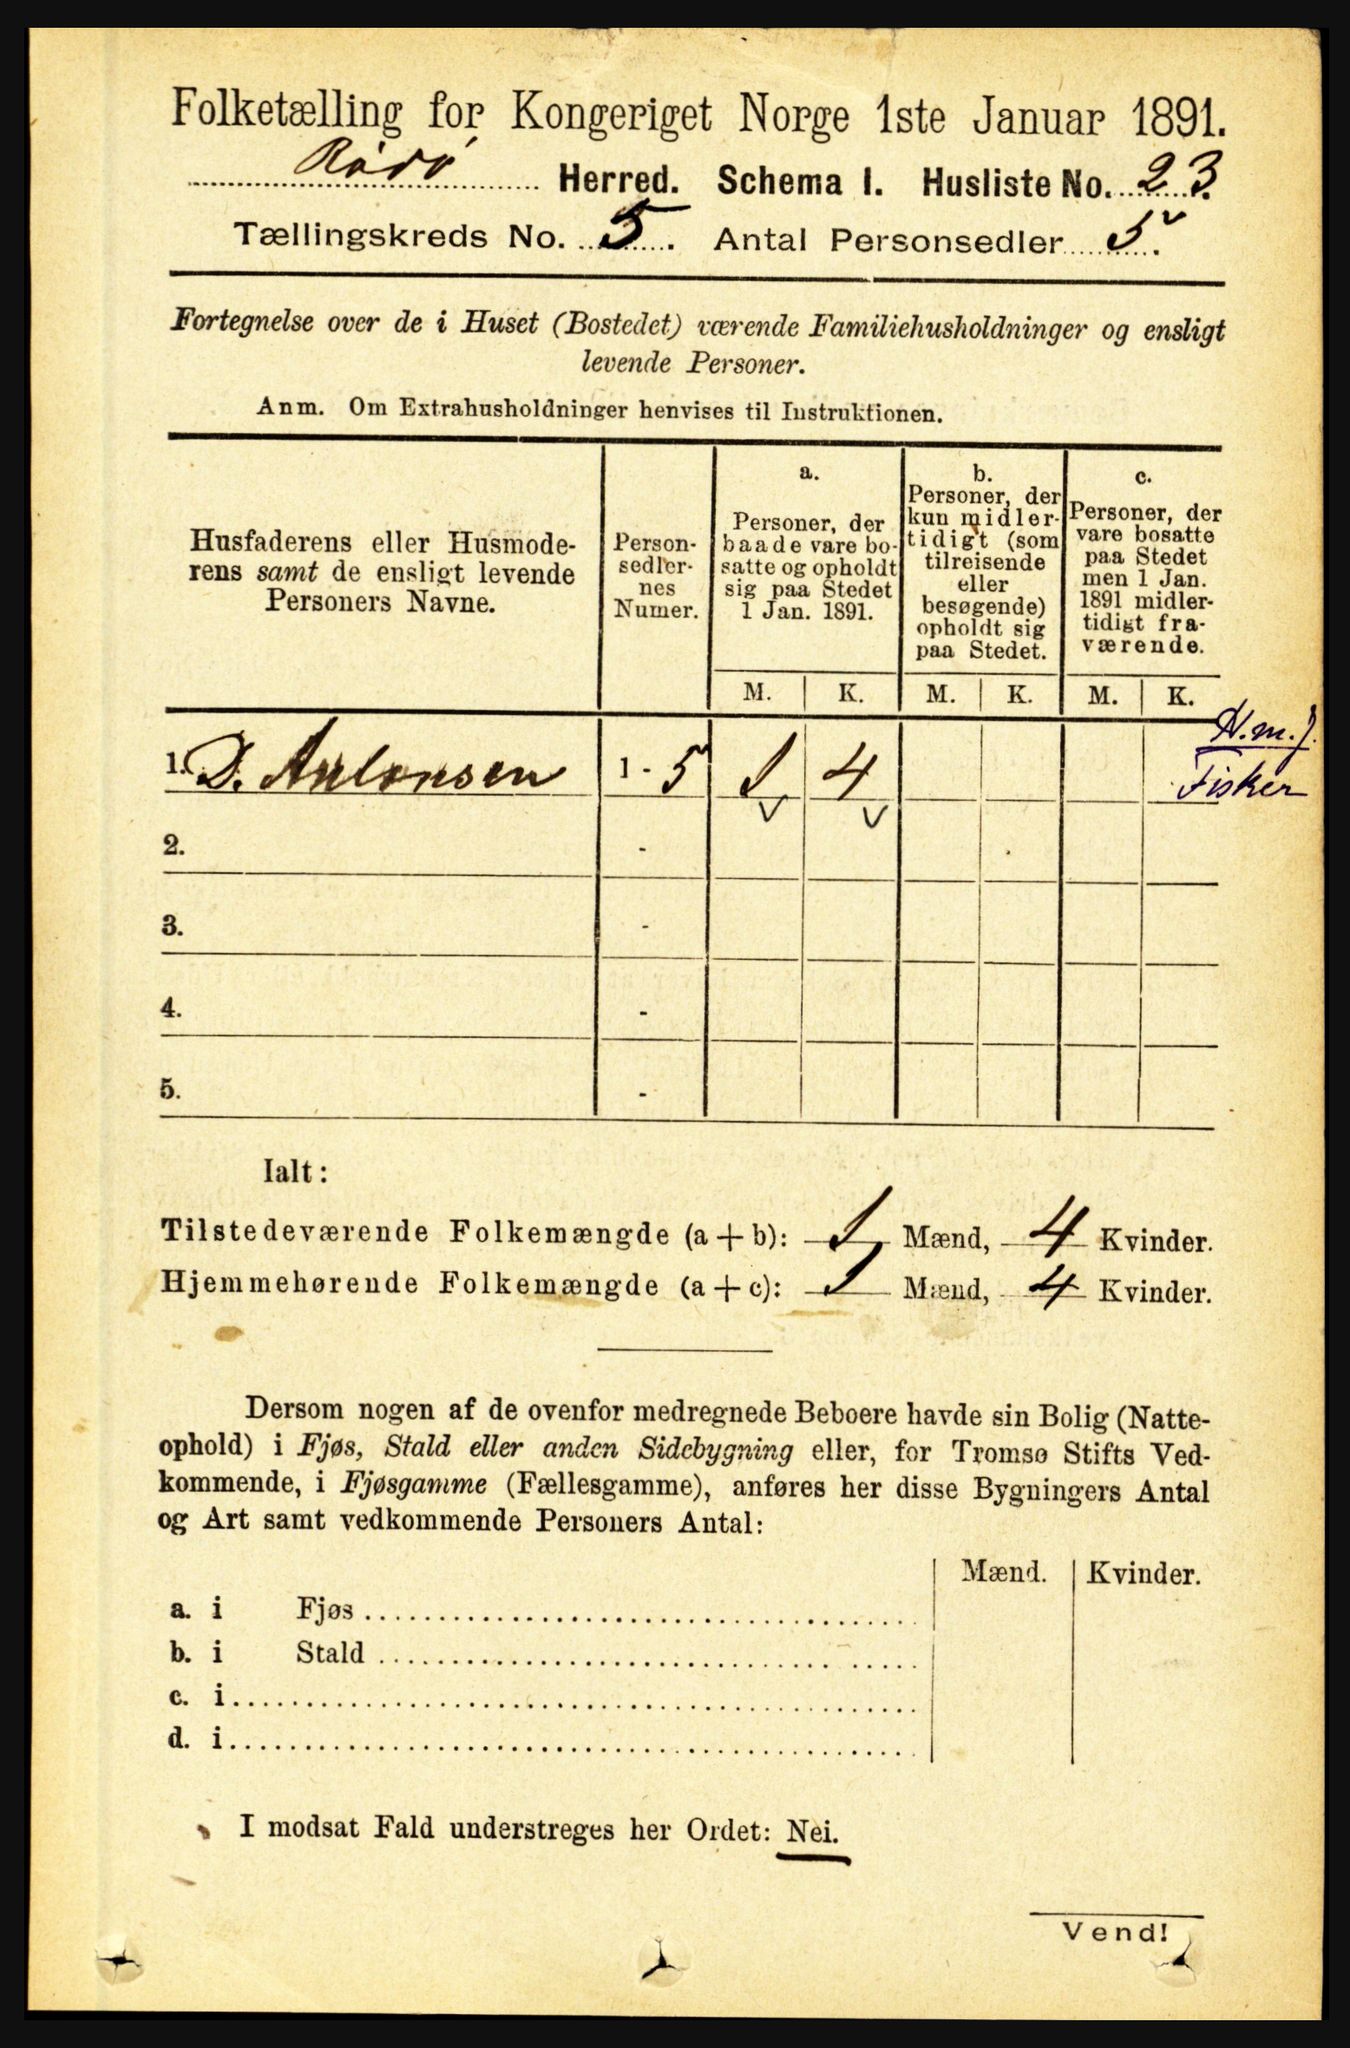 Folketælling for Kongeriget Norge 1ste Januar 1891.
Rødø Herred. Schema I. Husliste No. 23.
Tællingskreds No. 5. Antal Personsedler 5.
Fortegnelse over de i Huset (Bostedet) værende Familiehusholdninger og ensligt
levende Personer.
Anm. Om Extrahusholdninger henvises til Instruktionen.
Husfaderens eller Husmode-
rens samt de ensligt levende
Personers Navne.
Person-
sedler-
nes
Numer.
a.
Personer, der
baade vare bo-
satte og opholdt
sig paa Stedet
1 Jan. 1891.
b.
Personer, der
kun midler-
tidigt (som
tilreisende
eller
besøgende)
opholdt sig
paa Stedet.
c.
Personer, der
vare bosatte
paa Stedet
men 1 Jan.
1891 midler-
tidigt fra-
værende.
M. K. M. K. M. K.
H.m.J.
1. D. Antonsen 1 - 5 1 4 Fisker
2. -
3. -
4. -
5. -
Ialt:
Tilstedeværende Folkemængde (a + b): 1 Mænd, 4 Kvinder.
Hjemmehørende Folkemængde (a + c): 1 Mænd, 4 Kvinder.
Dersom nogen af de ovenfor medregnede Beboere havde sin Bolig (Natte-
ophold) i Fjøs, Stald eller anden Sidebygning eller, for Tromsø Stifts Ved-
kommende, i Fjøsgamme (Fællesgamme), anføres her disse Bygningers Antal
og Art samt vedkommende Personers Antal:
Mænd. Kvinder.
a. i Fjøs
b. i Stald
c. i
d. i
I modsat Fald understreges her Ordet: Nei.
Vend!